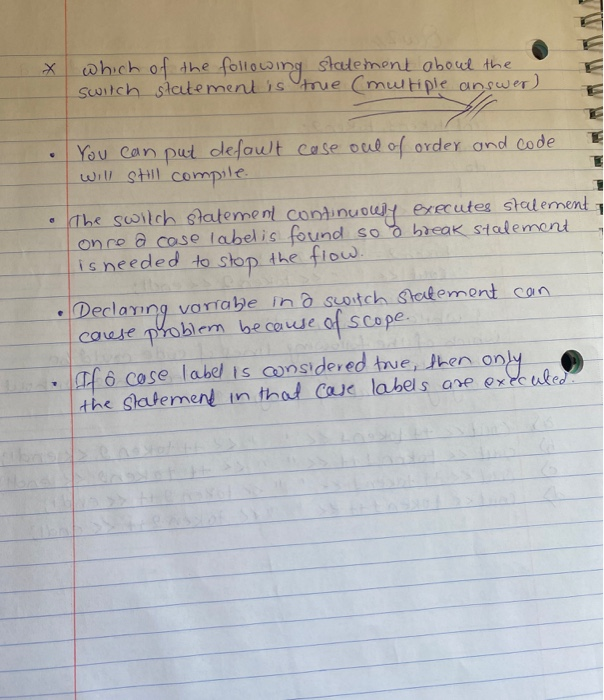 * Which of the following statement about the
switch statement is true (multiple answer)
• You can put default case out of order and code
will still compile.
• The switch statement continuously executes statement
once a case label is found so a break statement
is needed to stop the flow.
• Declaring variable in a switch statement can
cause problem because of scope.
• If a case label is considered true, then only
the statement in that case labels are executed.